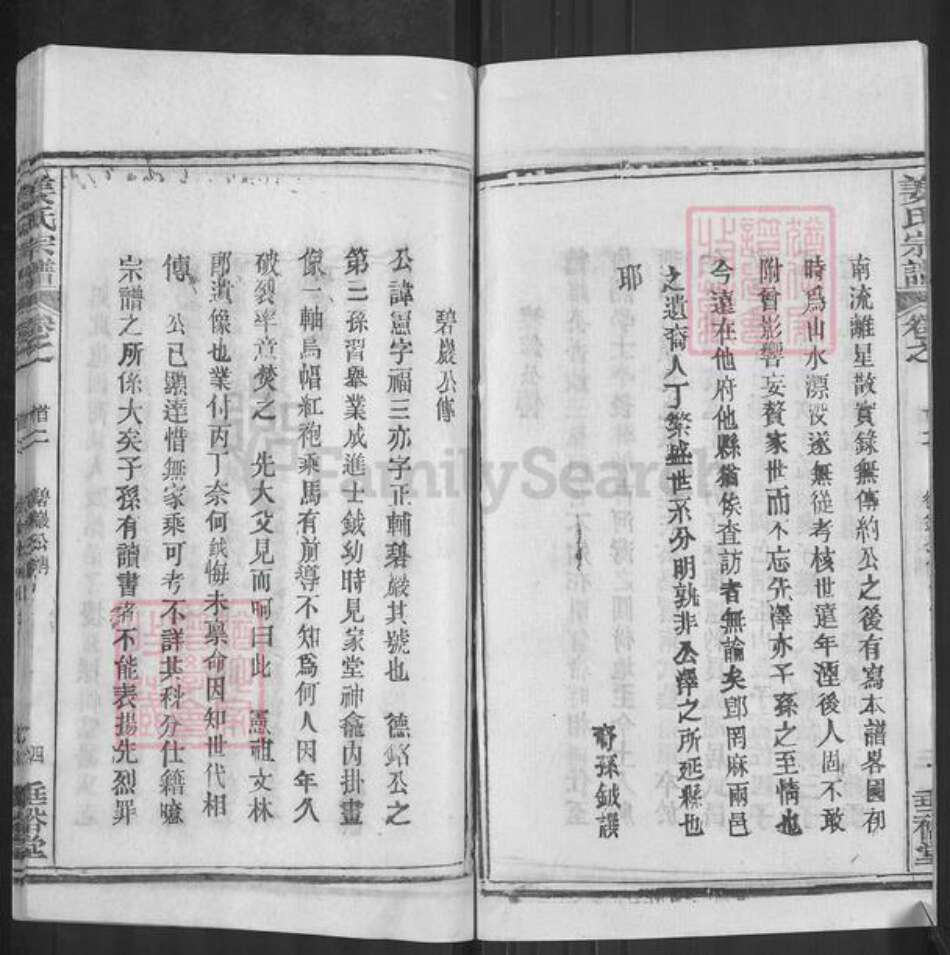 姜氏宗譜
南流離星散實錄無傳約公之後有寫本譜畧國初
時爲山水漂沒遂無從考核世遠年湮後人固不敢
附會影響妄贅家世而不忘先澤亦子孫之至情也
今遠在他府他縣猶俟查訪者無論矣卽罔麻兩邑
之遺裔人丁繁盛世系分明孰非公澤之所延緜也
耶
裔孫鉞譔
垂裕堂
碧巖公傳
公諱憲字福三亦字正輔碧巖其號也 德銘公之
第三孫習舉業成進士鉞幼時見家堂神龕内掛畫
像一軸烏帽紅袍乘馬有前導不知爲何人因年久
破裂率意焚之 先大父見而呵曰此 憲祖文林
郎遺像也業付丙丁奈何鉞悔未稟命因知世代相
傳 公已顯達惜無家乘可考不詳其科分仕籍噫
宗譜之所係大矣子孫有讀書者不能表揚先烈罪
姜氏宗譜
卷之
首二
碧巖公傳
四
垂裕堂
FamilySearch